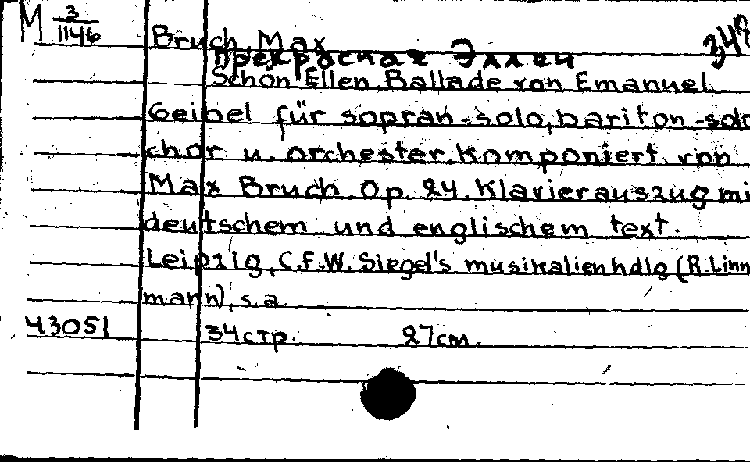 M 3/1146
Bruch, Max 347
Прекрасная Эллен
Schön Ellen. Ballade von Emanuel
Geibel für sopran-solo, bariton-solo
chor u. orchester. Komponiert von
Max Bruch. Op. 24. Klavierauszug mi
deutschem und englischem text.
Leipzig, C.F.W. Siegel's musikalienhdlg (R. Linn
mann), s.a.
43051 34 стр. 27 см.